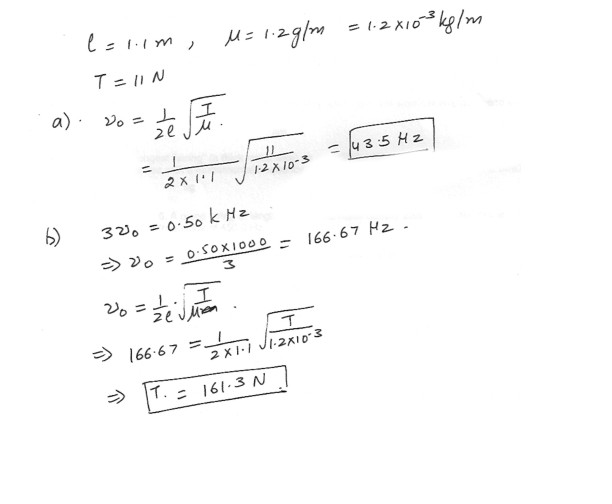 l = 1.1 m , μ = 1.2 g/m = 1.2 x 10⁻³ kg/m
T = 11 N
a). ν₀ = 1/2l √(T/μ).
= 1/(2 x 1.1) √(11/(1.2 x 10⁻³)) = 43.5 Hz
b) 3ν₀ = 0.50 k Hz
⇒ ν₀ = (0.50 x 1000)/3 = 166.67 Hz .
ν₀ = 1/2l √(T/μ) .
⇒ 166.67 = 1/(2 x 1.1) √(T/(1.2 x 10⁻³))
⇒ T. = 161.3 N .